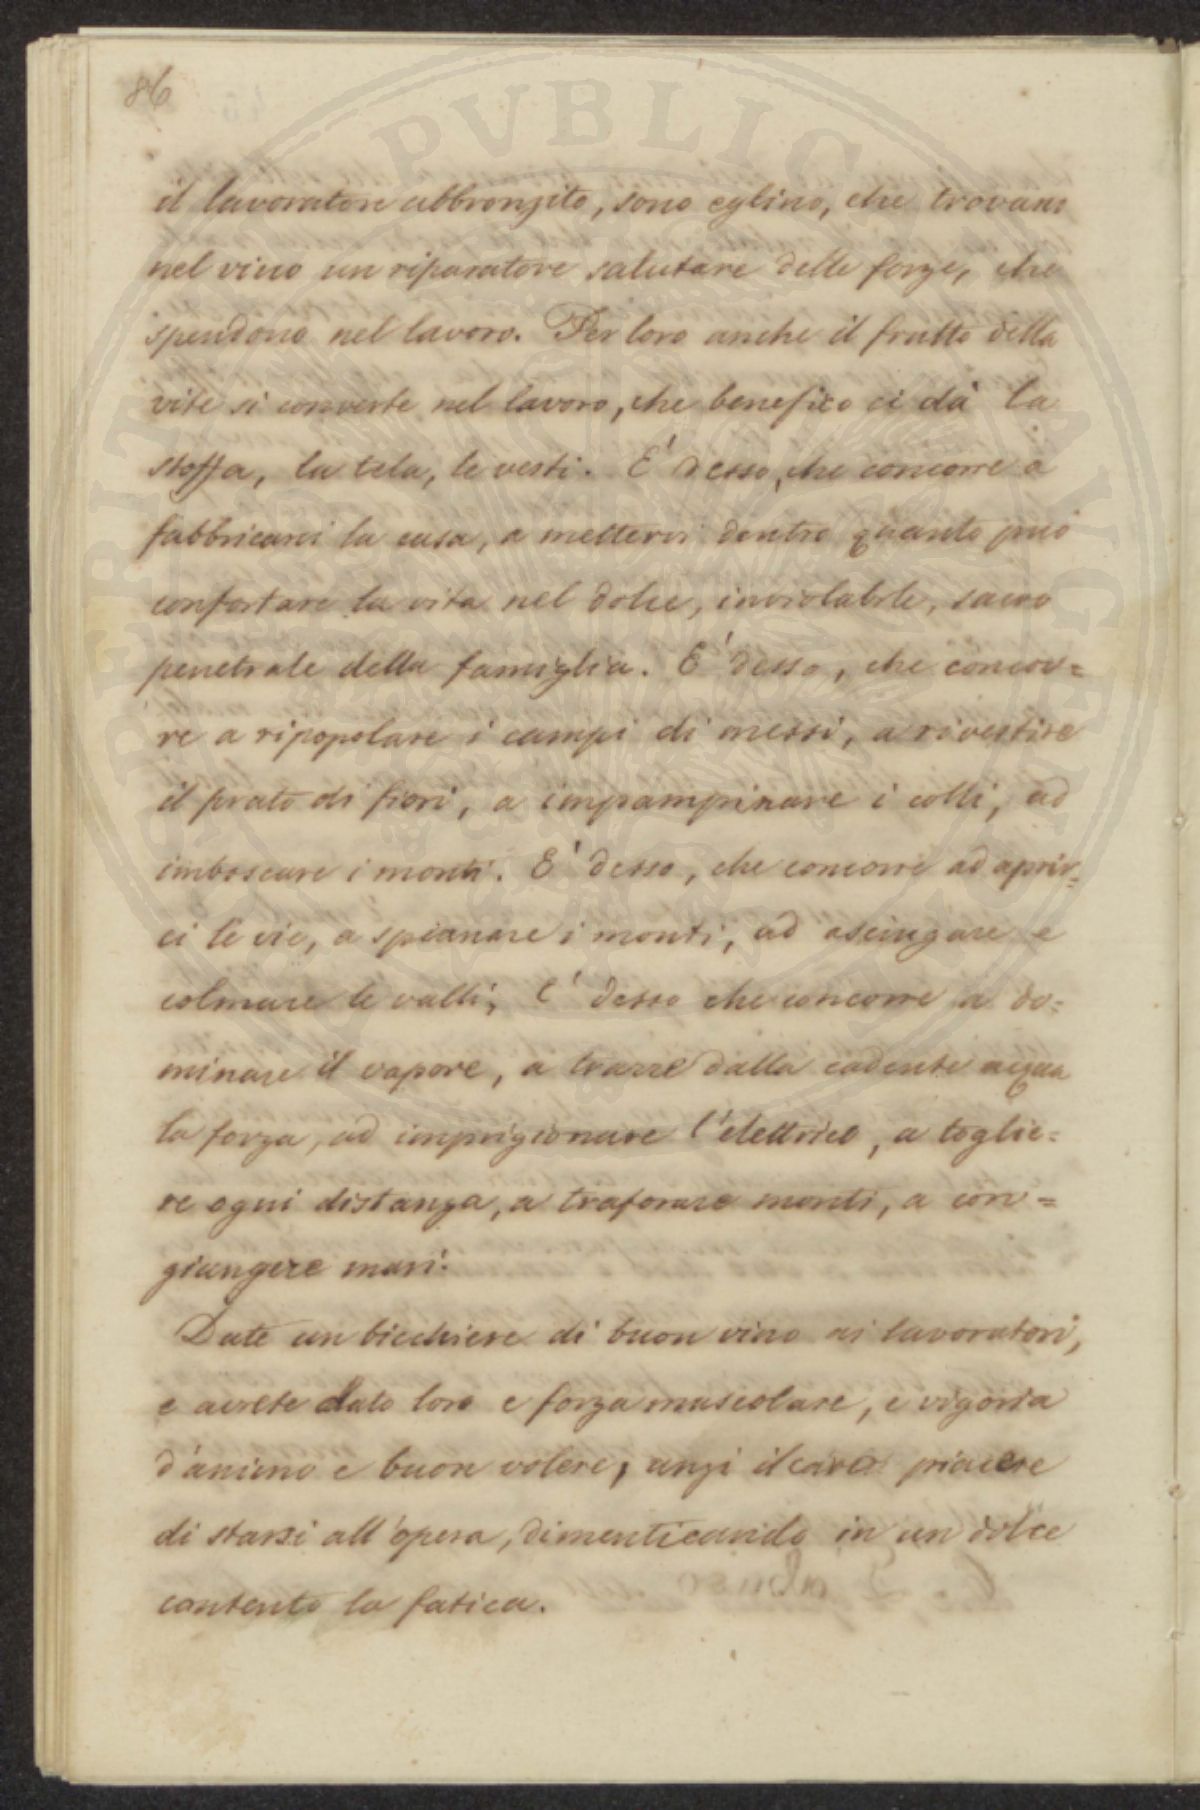 86
il lavoratore abbronzito, sono eglino, che trovano
nel vino un riparatore salutare delle forze, che
spendono nel lavoro. Per loro anche il frutto della
vite si converte nel lavoro, che benefico ci dà la
stoffa, la tela, le vesti. É desso, che concorre a
fabbricarci la casa, a metterci dentro quanto può
confortare la vita nel dolce, inviolabile, sacro
penetrale della famiglia. É desso, che concor=
re a ripopolare i campi di messi, a rivestire
il prato di fiori, a impampinare i colli, ad
imboscare i monti. É desso, che concorre ad aprir=
ci le vie, a spianare i monti, ad asciugare e
colmare le valli; é desso che concorre a do=
minare il vapore, a trarre dalla cadente acqua
la forza, ad imprigionare l'elettrico, a toglie=
re ogni distanza, a traforare monti, a con=
giungere mari.
Date un bicchiere di buon vino ai lavoratori,
e avrete dato loro e forza muscolare, e vigoria
d'animo e buon volere, anzi il caro piacere
di starsi all'opera, dimenticando in un dolce
contento la fatica.
PVBLIC